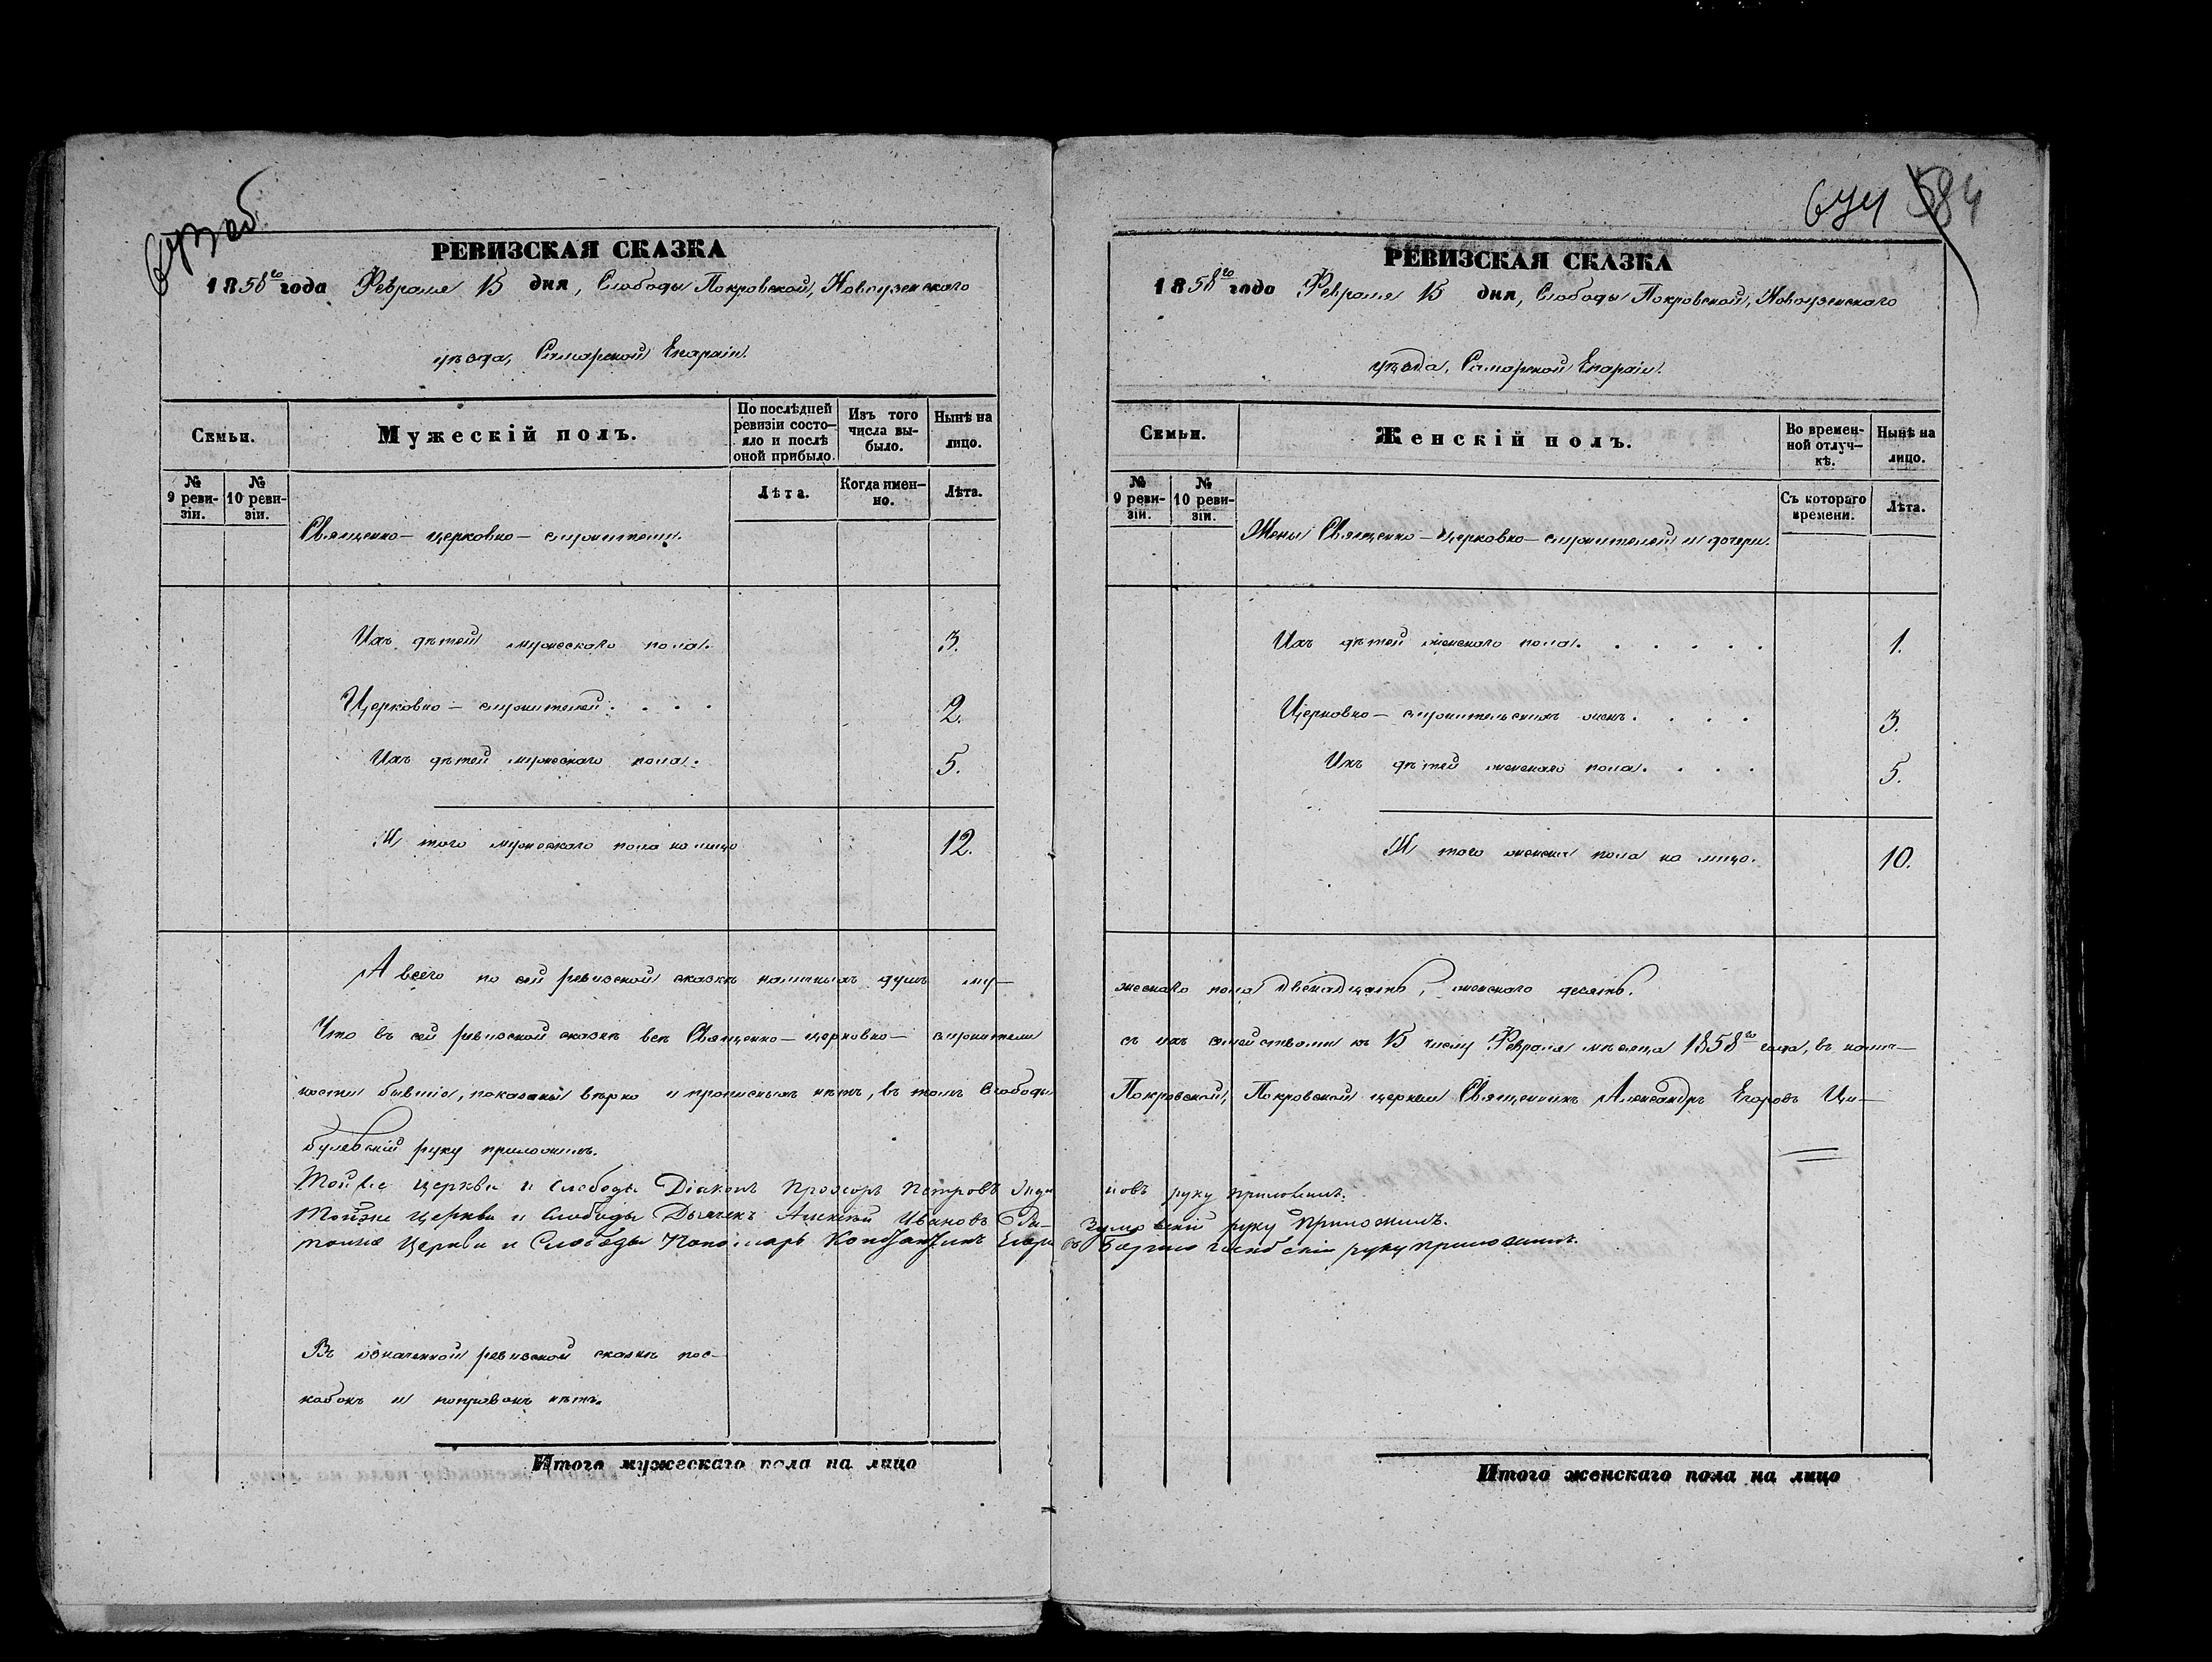 643 об
РЕВИЗСКАЯ СКАЗКА
1858го года Февраля 15 дня, Слободы Покровской, Новоузенскаго
уѣзда, Самарской Епархіи.
Семьи.
Мужескій полъ.
По послѣдней ревизіи состояло и послѣ оной прибыло.
Изъ того числа выбыло.
Нынѣ на лицо.
№ 9 ревизіи.
№ 10 ревизіи.
Лѣта.
Когда именно.
Лѣта.
Священно-церковно-служители.
Ихъ дѣтей мужескаго пола. 3.
Церковно-служителей . . . . 2.
Ихъ дѣтей мужескаго пола. 5.
И того мужескаго пола на лицо 12.
А всего по сей ревизской сказкѣ наличныхъ душъ му-
Что въ сей ревизской сказкѣ всѣ Священно-церковно-служители
ности бывшіе, показаны вѣрно и прописныхъ нѣтъ, въ томъ Слободы
булевскій руку приложилъ.
Той же церкви и слободы Діаконъ Прохоръ Петровъ
Тойже Церкви и Слободы Дьячекъ Алексѣй Ивановъ Ра-
тойже Церкви и Слободы Пономарь Константинъ Егоро
Въ означенной ревизской сказкѣ пос-
кобокъ и поправокъ нѣтъ.
Итого мужескаго пола на лицо
644 584
РЕВИЗСКАЯ СКАЗКА
1858го года Февраля 15 дня, Слободы Покровской, Новоузенскаго
уѣзда, Самарской Епархіи.
Семьи.
Женскій полъ.
Во временной отлучкѣ.
Нынѣ на лицо.
№ 9 ревизіи.
№ 10 ревизіи.
Съ котораго времени.
Лѣта.
Жены Священно-церковно-служителей и дочери.
Ихъ дѣтей женскаго пола. . . . . . . 1.
Церковно-служительскихъ женъ. . . . 3.
Ихъ дѣтей женскаго пола. . . . 5.
И того женска пола на лицо. 10.
жескаго пола двенадцать, женскаго десять.
съ ихъ семействами къ 15 числу Февраля мѣсяца 1858го года, въ налич-
Покровской, Покровской церкви Священникъ Александръ Егоровъ Ци-
новъ руку приложилъ.
зумовскій руку приложилъ.
въ руку приложилъ.
Итого женскаго пола на лицо